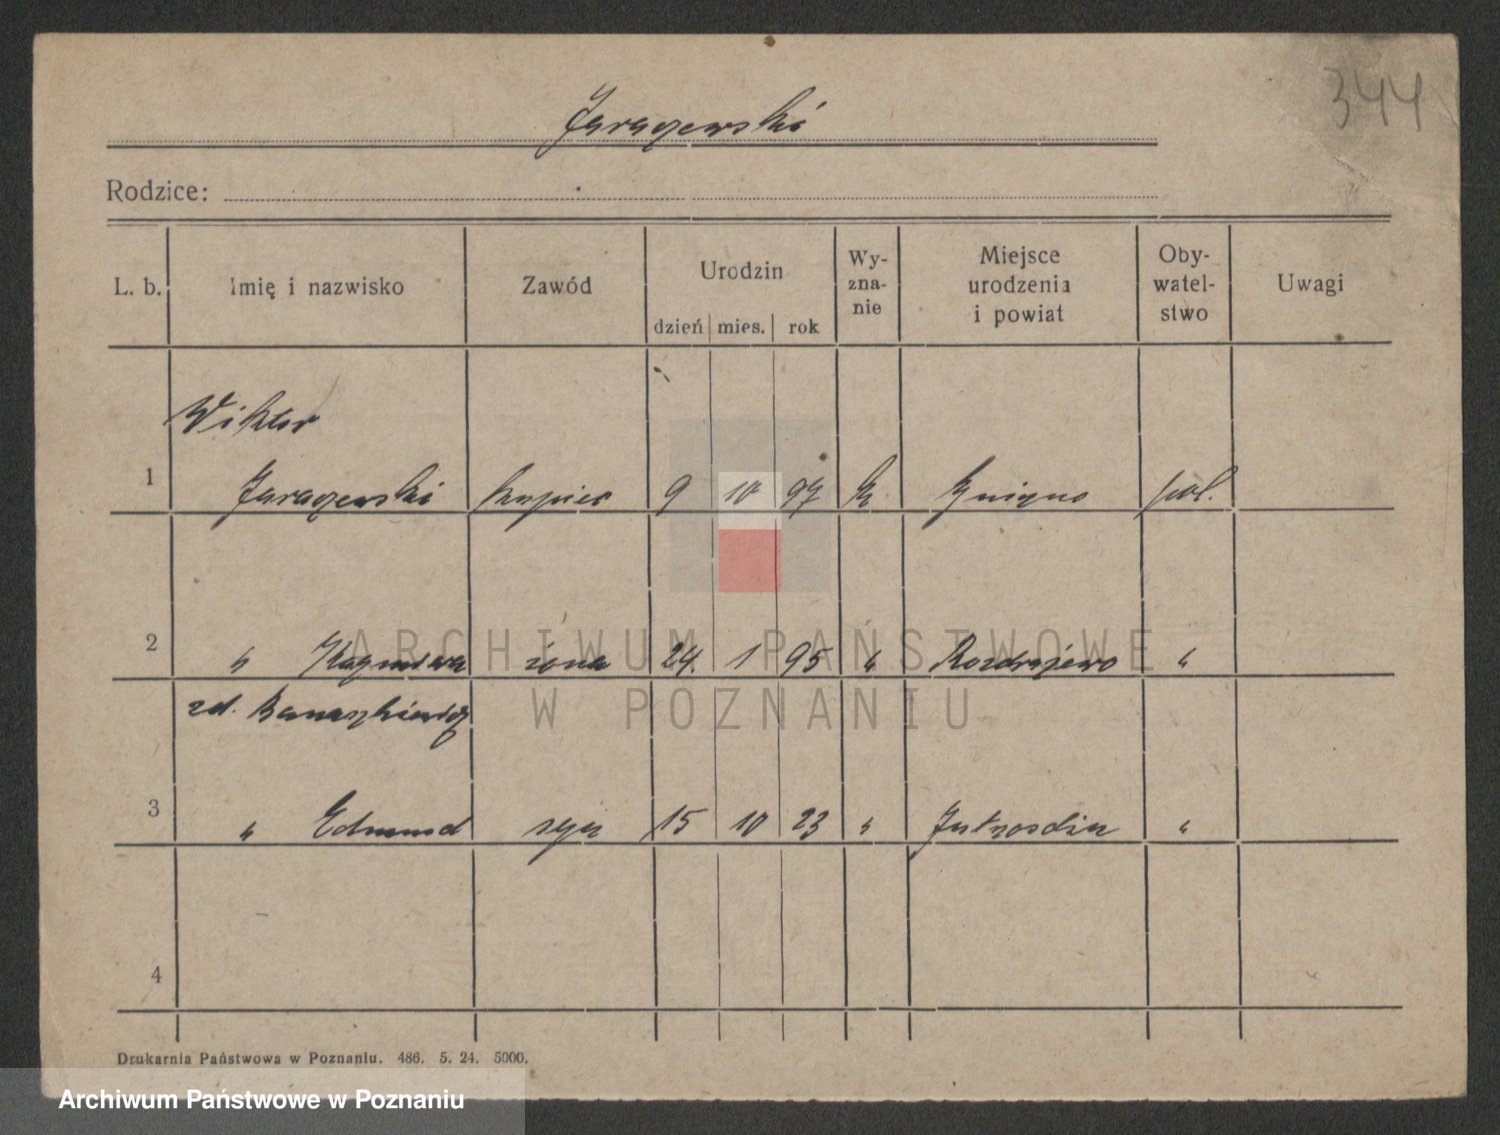 344
Jaraczewski
Rodzice:
L. b. Imię i nazwisko Zawód Urodzin Wy-zna-nie Miejsce urodzenia i powiat Oby-watel-stwo Uwagi
dzień mies. rok
Wiktor
1 Jaraczewski kupiec 9 10 97 k Gniezno pol.
2 " Kazimiera żona 24. 1 95 " Rozdrażewo "
zd. Banaszkiewicz
3 " Edmund syn 15 10 23 " Jutrosin "
4
Drukarnia Państwowa w Poznaniu. 486. 5. 24. 5000.
ARCHIWUM PAŃSTWOWE
W POZNANIU
Archiwum Państwowe w Poznaniu